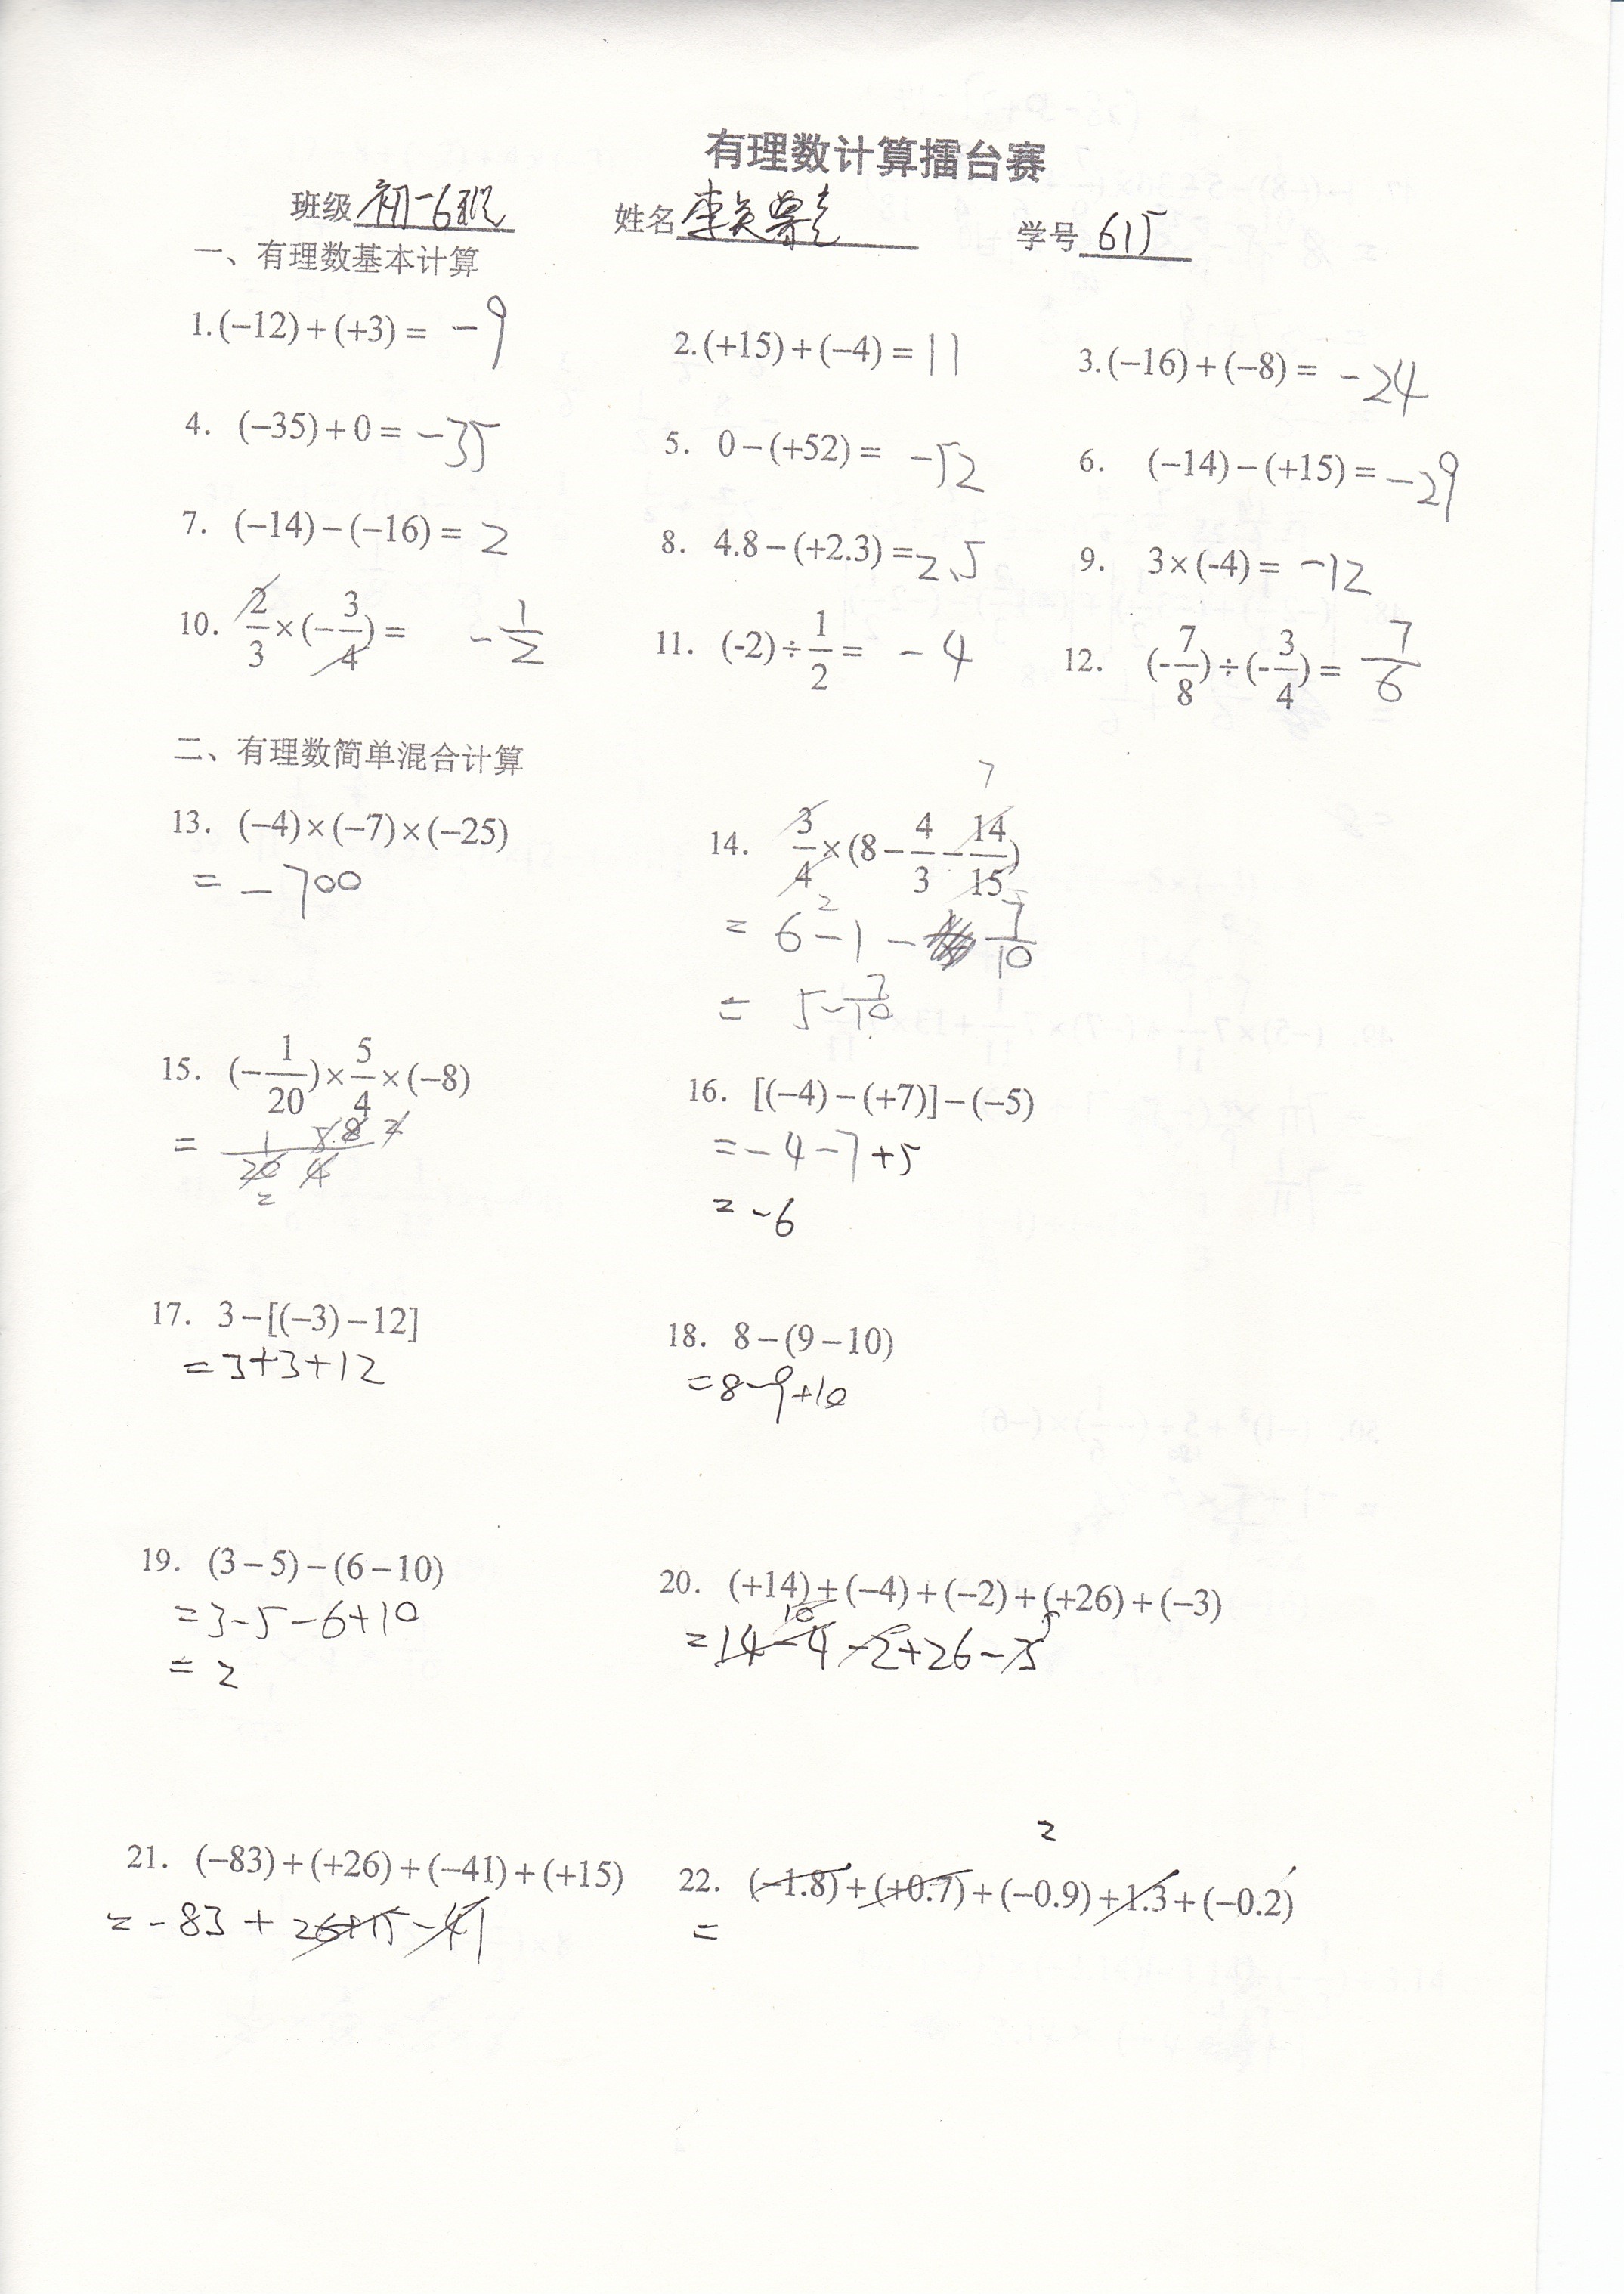 有理数计算擂台赛
班级 初一6班 姓名 李 学号 615
一、有理数基本计算
1.(−12)+(+3)= −9 2.(+15)+(−4)= 11 3.(−16)+(−8)= −24
4. (−35)+0= −35 5. 0−(+52)= −52 6. (−14)−(+15)= −29
7. (−14)−(−16)= 2 8. 4.8−(+2.3)= 2.5 9. 3×(-4)= −12
10. 2/3×(−3/4)= −1/2 11. (-2)÷1/2= −4 12. (-7/8)÷(-3/4)= 7/6
二、有理数简单混合计算
7
13. (−4)×(−7)×(−25) 14. 3/4×(8−4/3−14/15)
= −700 = 6−1− 7/10
= 5−7/10
15. (−1/20)×5/4×(−8) 16. [(−4)−(+7)]−(−5)
= =−4−7+5
= −6
17. 3−[(−3)−12] 18. 8−(9−10)
=3+3+12 =8−9+10
19. (3−5)−(6−10) 20. (+14)+(−4)+(−2)+(+26)+(−3)
=3−5−6+10 =14−4−2+26−3
= 2
2
21. (−83)+(+26)+(−41)+(+15) 22. (−1.8)+(+0.7)+(−0.9)+1.3+(−0.2)
= −83+26+15−41 =